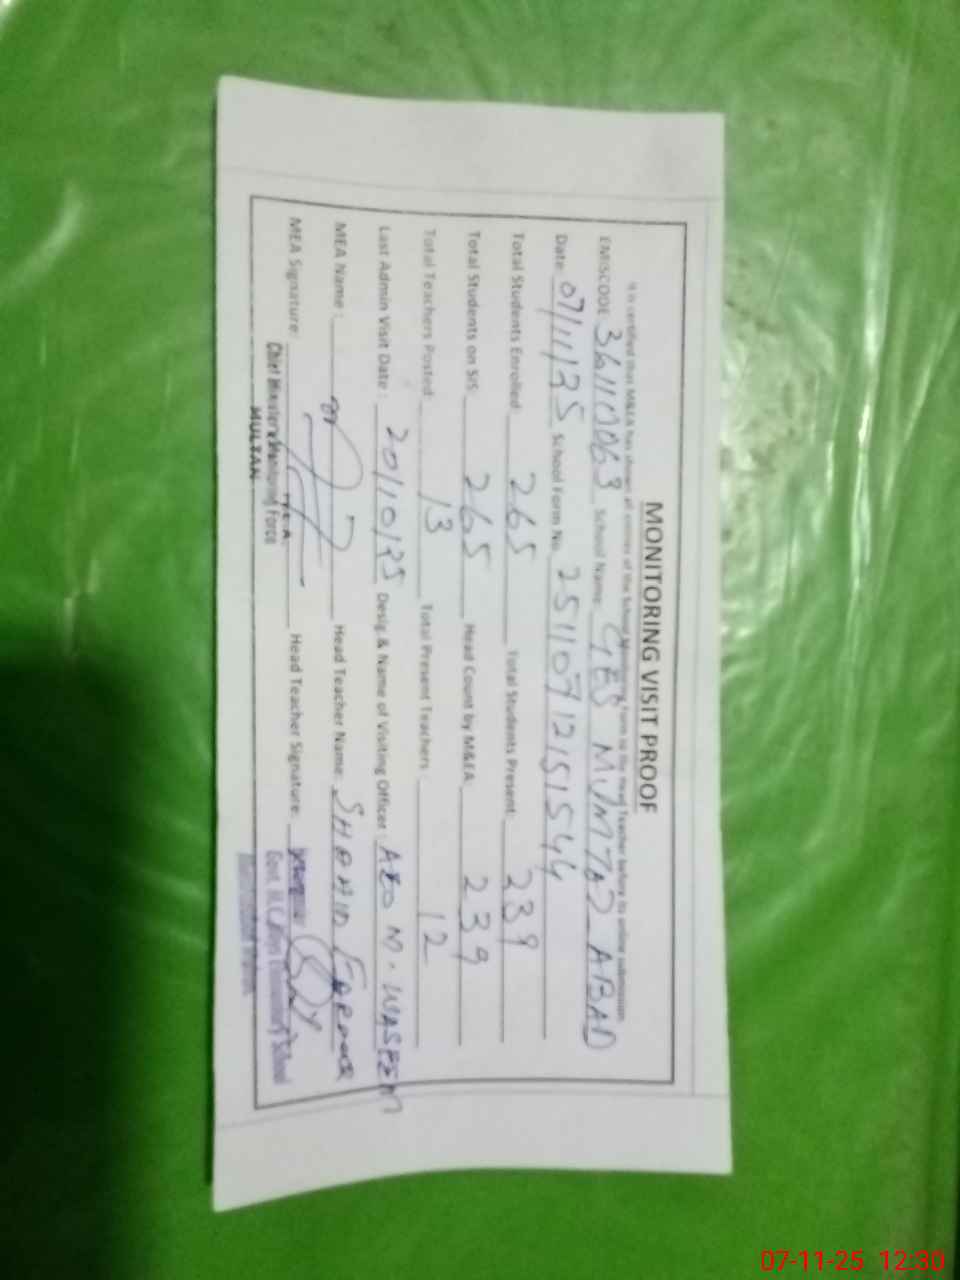 MONITORING VISIT PROOF
It is certified that M&EA has shown all entries of the School Form to the Head Teacher before its online submission
EMISCODE 36110063 School Name: GES MUMTAZ ABAD
Date: 07/11/25 School Form No. 25110712151544
Total Students Enrolled 265 Total Students Present: 239
Total Students on SIS: 265 Head Count by M&EA: 239
Total Teachers Posted: 13 Total Present Teachers: 12
Last Admin Visit Date: 20/10/25 Desig & Name of Visiting Officer: AEO M. WASEEM
MEA Name: Head Teacher Name: SHAHID FAROOQ
MEA Signature: Head Teacher Signature:
M.E.A.
Chief Minister's Monitoring Force
MULTAN
Elementary School
07-11-25 12:30